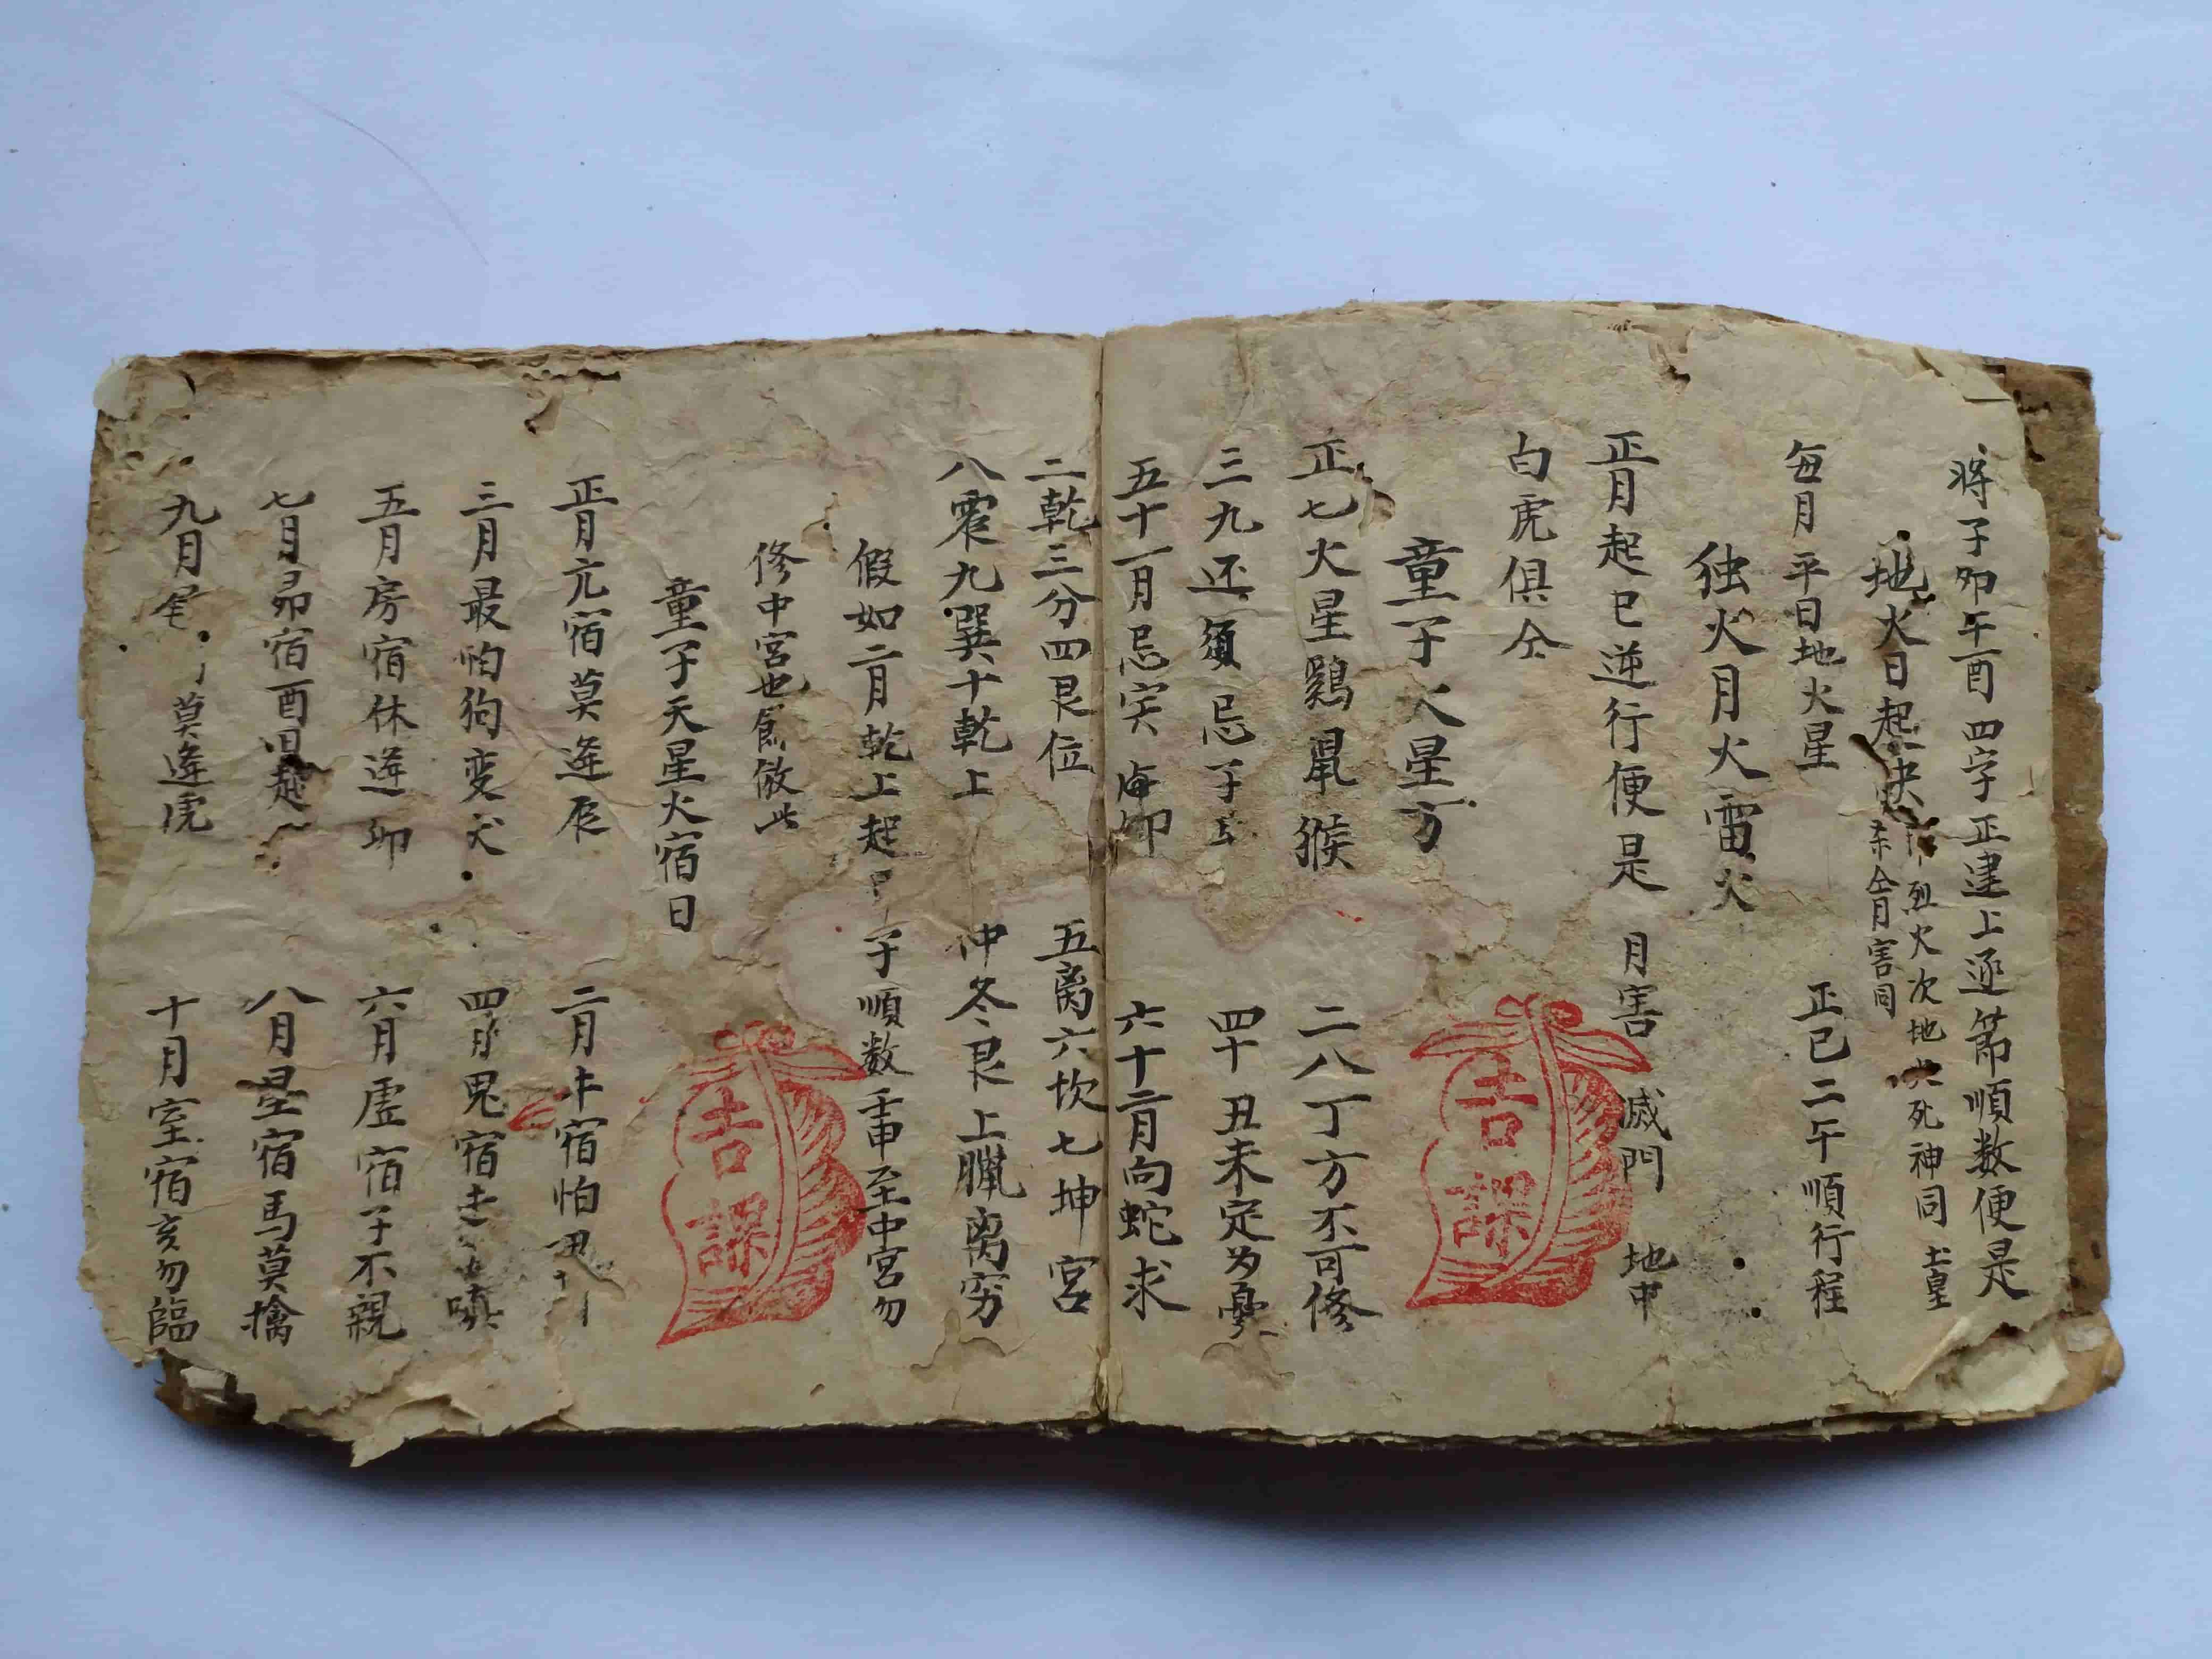 将子卯午酉四字正建上逐節順数便是
地火日起决
烈火次地火死神同 土皇
全月害同
每月平日地火星 正巳二午順行程
独火月火雷火
正月起巳逆行便是 月害 滅門 地中
白虎俱仝
童子火星方
正七火星鷄鼠猴 二八丁方不可修
三九还須忌子 四十丑未定为憂
五十一月忌寅卯 六十二月向蛇求
二乾三分四艮位 五离六坎七坤宮
八震九巽十乾上 仲冬艮上臘离穷
假如二月乾上起甲子順数壬申至中宮勿
修中宮也餘倣此
童子天星火宿日
正月亢宿莫逢辰 二月牛宿怕丑
三月最怕狗变犬 四月鬼宿 嗔
五月房宿休逢卯 六月虚宿子不親
七月昴宿酉日起 八月星宿馬莫擒
九月尾 莫逢虎 十月室宿亥勿臨
吉課
吉課